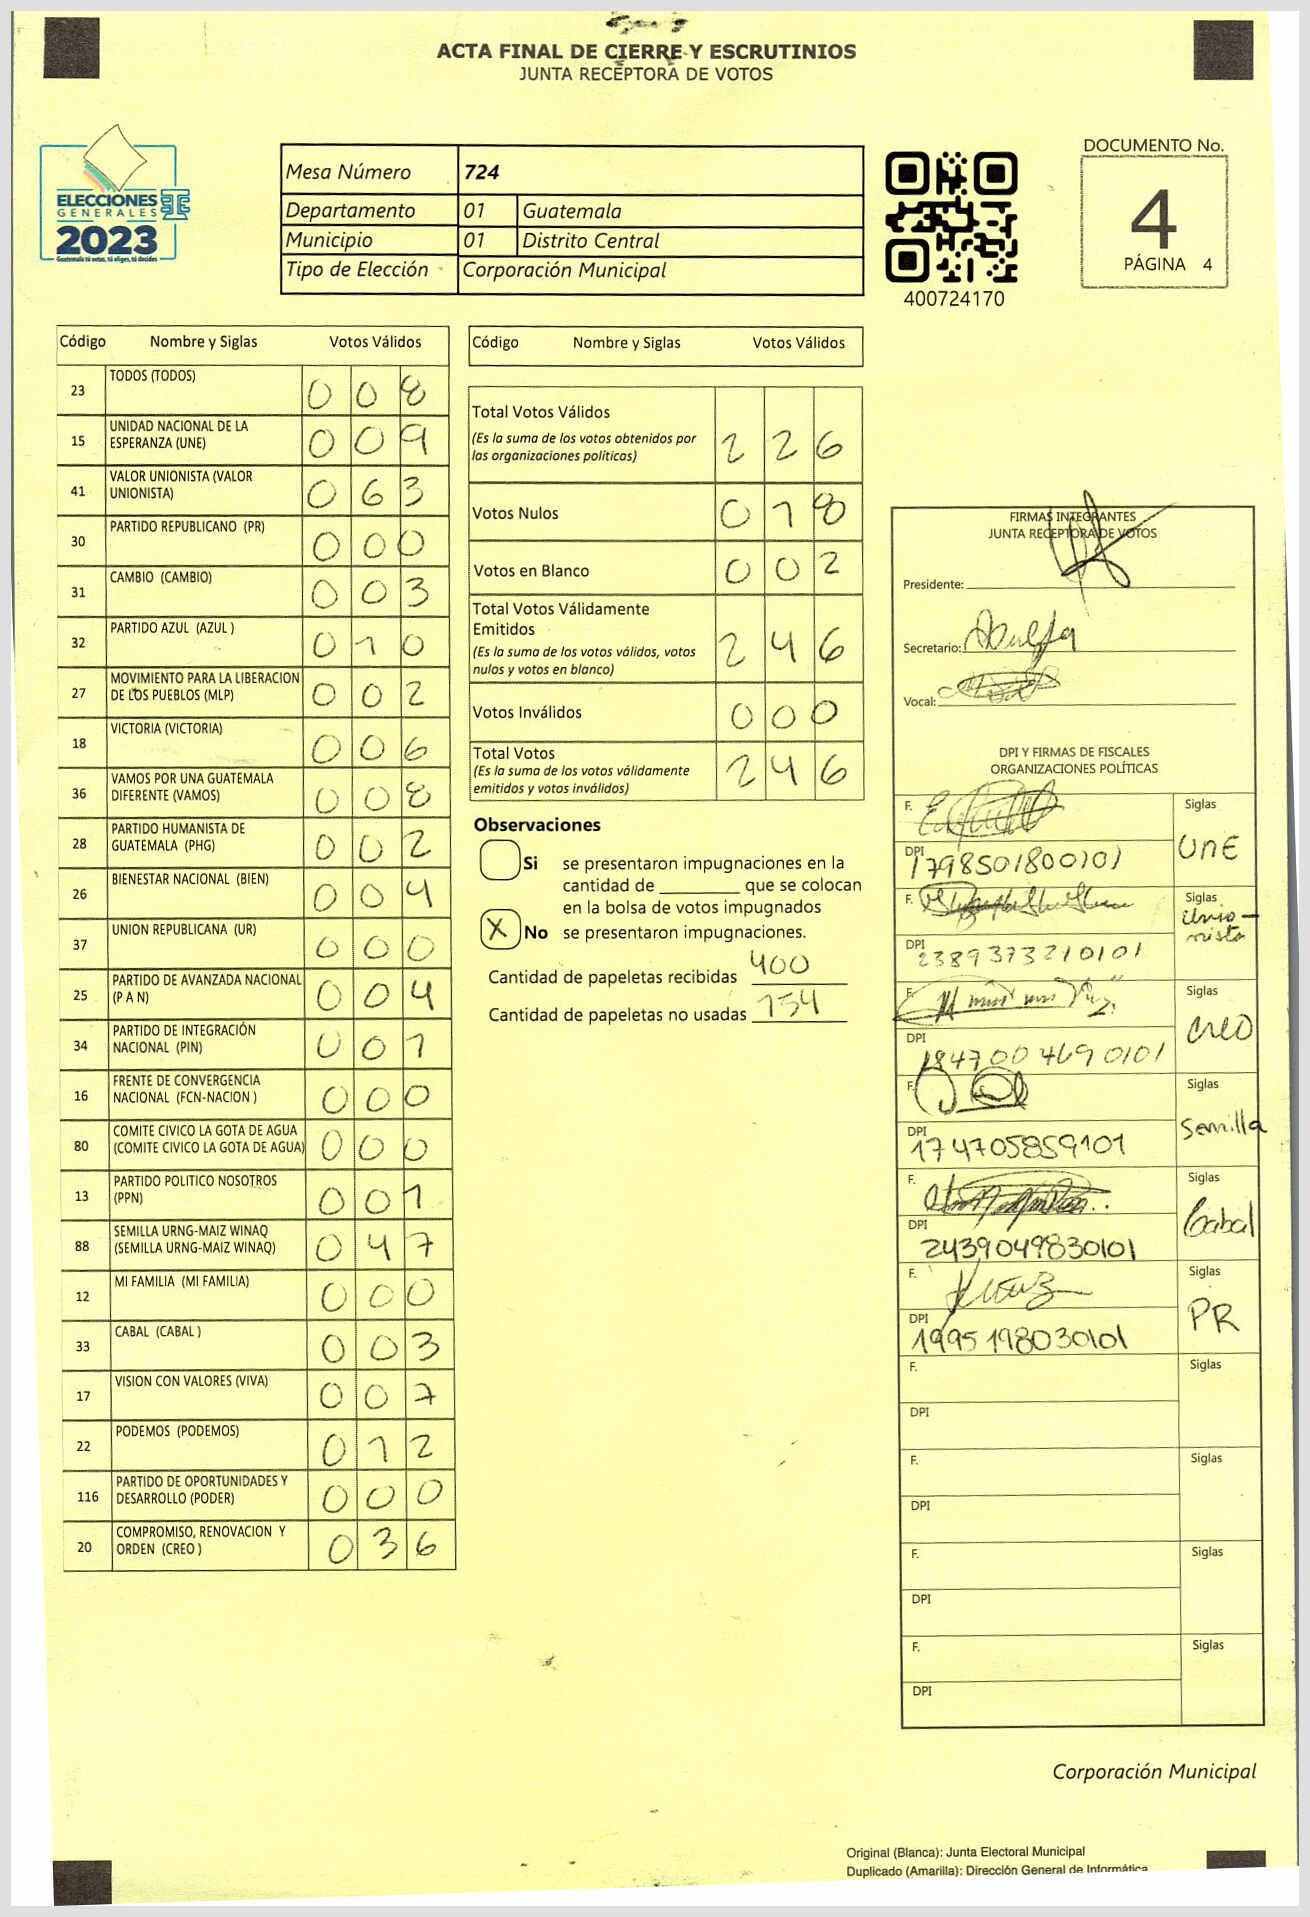 ACTA FINAL DE CIERRE Y ESCRUTINIOS
JUNTA RECEPTORA DE VOTOS
ELECCIONES
GENERALES
2023
Guatemala tú votas, tú eliges, tú decides
Mesa Número 724
Departamento 01 Guatemala
Municipio 01 Distrito Central
Tipo de Elección Corporación Municipal
400724170
DOCUMENTO No.
4
PÁGINA 4
Código Nombre y Siglas Votos Válidos
23 TODOS (TODOS) 0 0 8
15 UNIDAD NACIONAL DE LA
ESPERANZA (UNE) 0 0 9
41 VALOR UNIONISTA (VALOR
UNIONISTA) 0 6 3
30 PARTIDO REPUBLICANO (PR) 0 0 0
31 CAMBIO (CAMBIO) 0 0 3
32 PARTIDO AZUL (AZUL ) 0 1 0
27 MOVIMIENTO PARA LA LIBERACION
DE LOS PUEBLOS (MLP) 0 0 2
18 VICTORIA (VICTORIA) 0 0 6
36 VAMOS POR UNA GUATEMALA
DIFERENTE (VAMOS) 0 0 8
28 PARTIDO HUMANISTA DE
GUATEMALA (PHG) 0 0 2
26 BIENESTAR NACIONAL (BIEN) 0 0 4
37 UNION REPUBLICANA (UR) 0 0 0
25 PARTIDO DE AVANZADA NACIONAL
(P A N) 0 0 4
34 PARTIDO DE INTEGRACIÓN
NACIONAL (PIN) 0 0 1
16 FRENTE DE CONVERGENCIA
NACIONAL (FCN-NACION ) 0 0 0
80 COMITE CIVICO LA GOTA DE AGUA
(COMITE CIVICO LA GOTA DE AGUA) 0 0 0
13 PARTIDO POLITICO NOSOTROS
(PPN) 0 0 1
88 SEMILLA URNG-MAIZ WINAQ
(SEMILLA URNG-MAIZ WINAQ) 0 4 7
12 MI FAMILIA (MI FAMILIA) 0 0 0
33 CABAL (CABAL ) 0 0 3
17 VISION CON VALORES (VIVA) 0 0 7
22 PODEMOS (PODEMOS) 0 1 2
116 PARTIDO DE OPORTUNIDADES Y
DESARROLLO (PODER) 0 0 0
20 COMPROMISO, RENOVACION Y
ORDEN (CREO ) 0 3 6
Código Nombre y Siglas Votos Válidos
Total Votos Válidos
(Es la suma de los votos obtenidos por
las organizaciones políticas) 2 2 6
Votos Nulos 0 1 8
Votos en Blanco 0 0 2
Total Votos Válidamente
Emitidos
(Es la suma de los votos válidos, votos
nulos y votos en blanco) 2 4 6
Votos Inválidos 0 0 0
Total Votos
(Es la suma de los votos válidamente
emitidos y votos inválidos) 2 4 6
Observaciones
Si se presentaron impugnaciones en la
cantidad de ________ que se colocan
en la bolsa de votos impugnados
X No se presentaron impugnaciones.
Cantidad de papeletas recibidas 400
Cantidad de papeletas no usadas 154
FIRMAS INTEGRANTES
JUNTA RECEPTORA DE VOTOS
Presidente:
Secretario:
Vocal:
DPI Y FIRMAS DE FISCALES
ORGANIZACIONES POLÍTICAS
F. Siglas
UNE
DPI 1798501800101
F. Siglas
Unio-
nista
DPI 2389373210101
F. Siglas
CREO
DPI 1847004690101
F. Siglas
Semilla
DPI 174705859101
F. Siglas
Cabal
DPI 2439049830101
F. Siglas
PR
DPI 1995198030101
F. Siglas
DPI
F. Siglas
DPI
F. Siglas
DPI
F. Siglas
DPI
Corporación Municipal
Original (Blanca): Junta Electoral Municipal
Duplicado (Amarilla): Dirección General de Informática